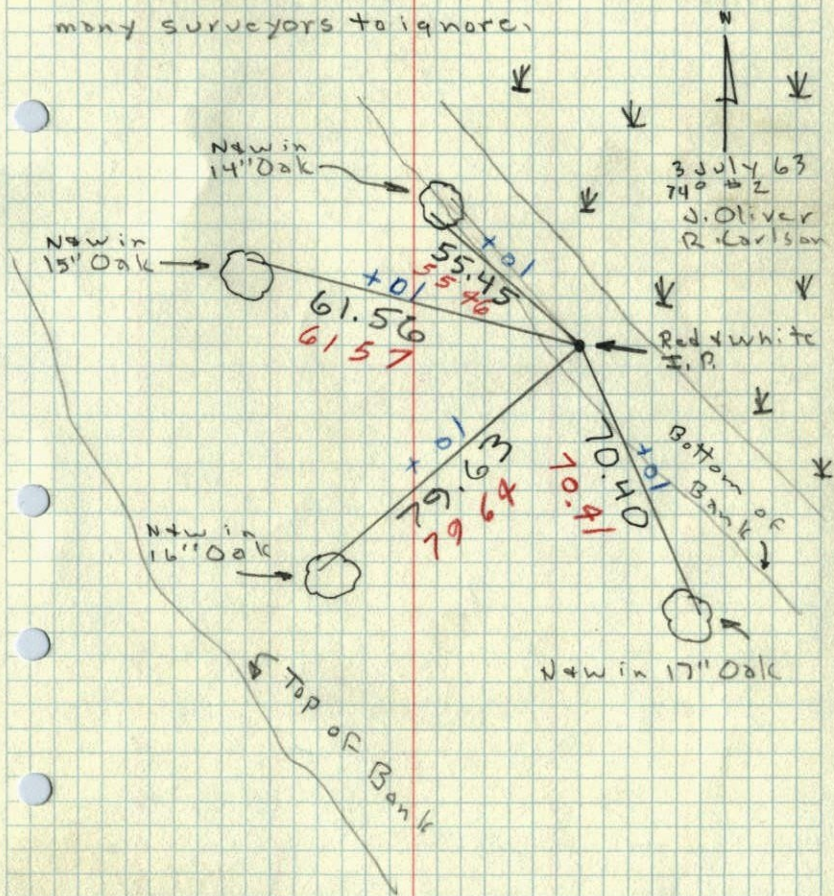 many surveyors to ignore.
N
3 July 63
74° #2
J. Oliver
R. Carlson
N&W in
14" Oak
N&W in
15" Oak
+01
55.45
55 46
+01
61.56
61 57
Red & White
I.P.
+01
79.63
79 64
+01
70.40
70.41
Bottom of
Bank
N&W in
16" Oak
N&W in 17" Oak
Top of Bank